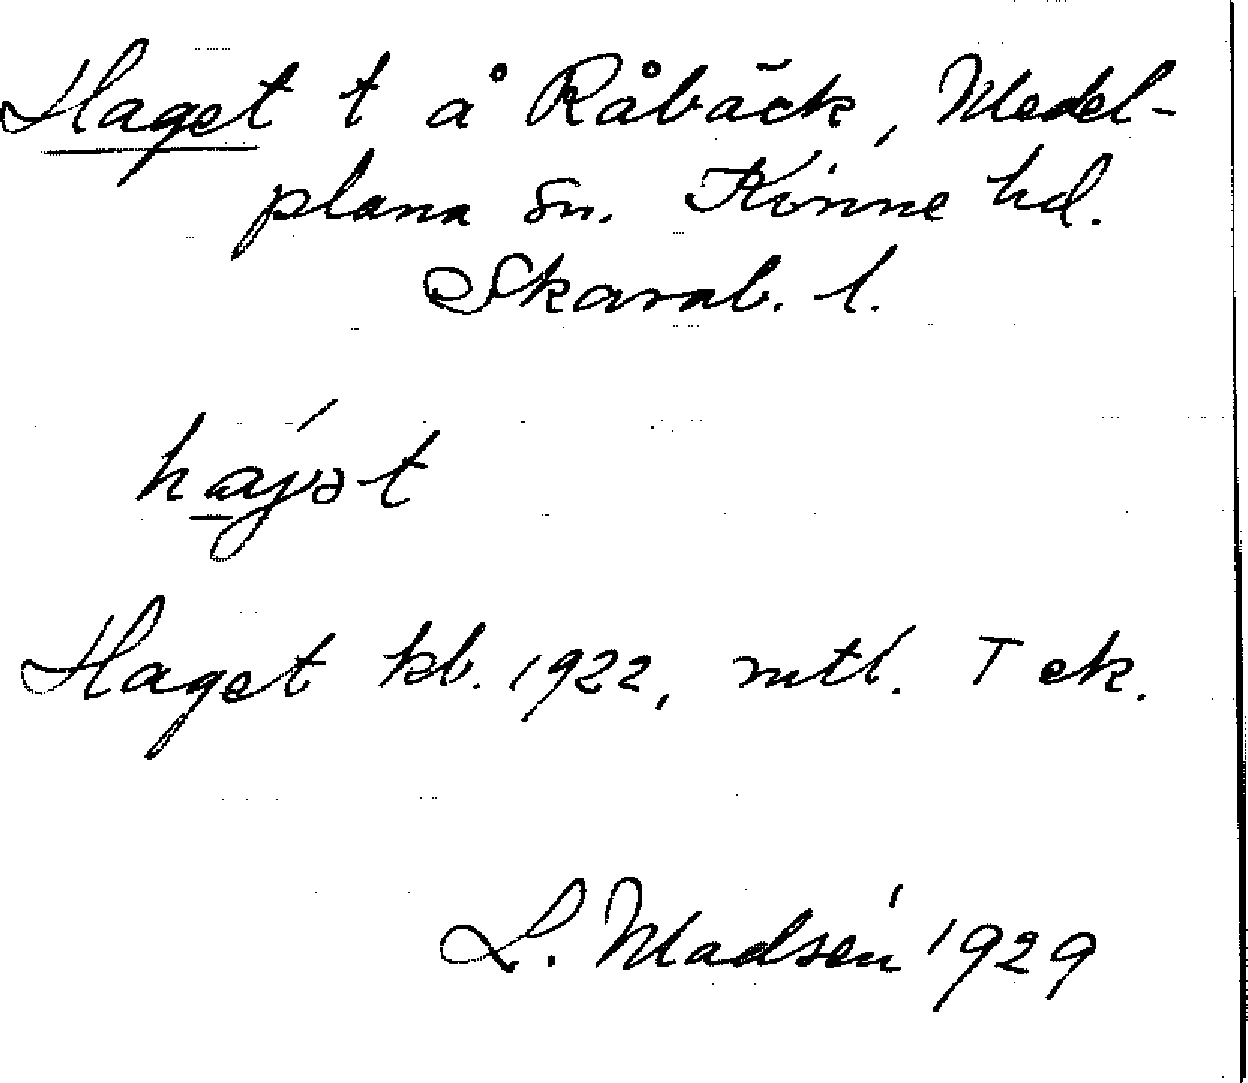 Haget t å Råbäck, Medel-
plana sn. Kinne hd.
Skarab. l.
háɣət
Haget kb. 1922, mtl. T ek.
L. Madsén 1929